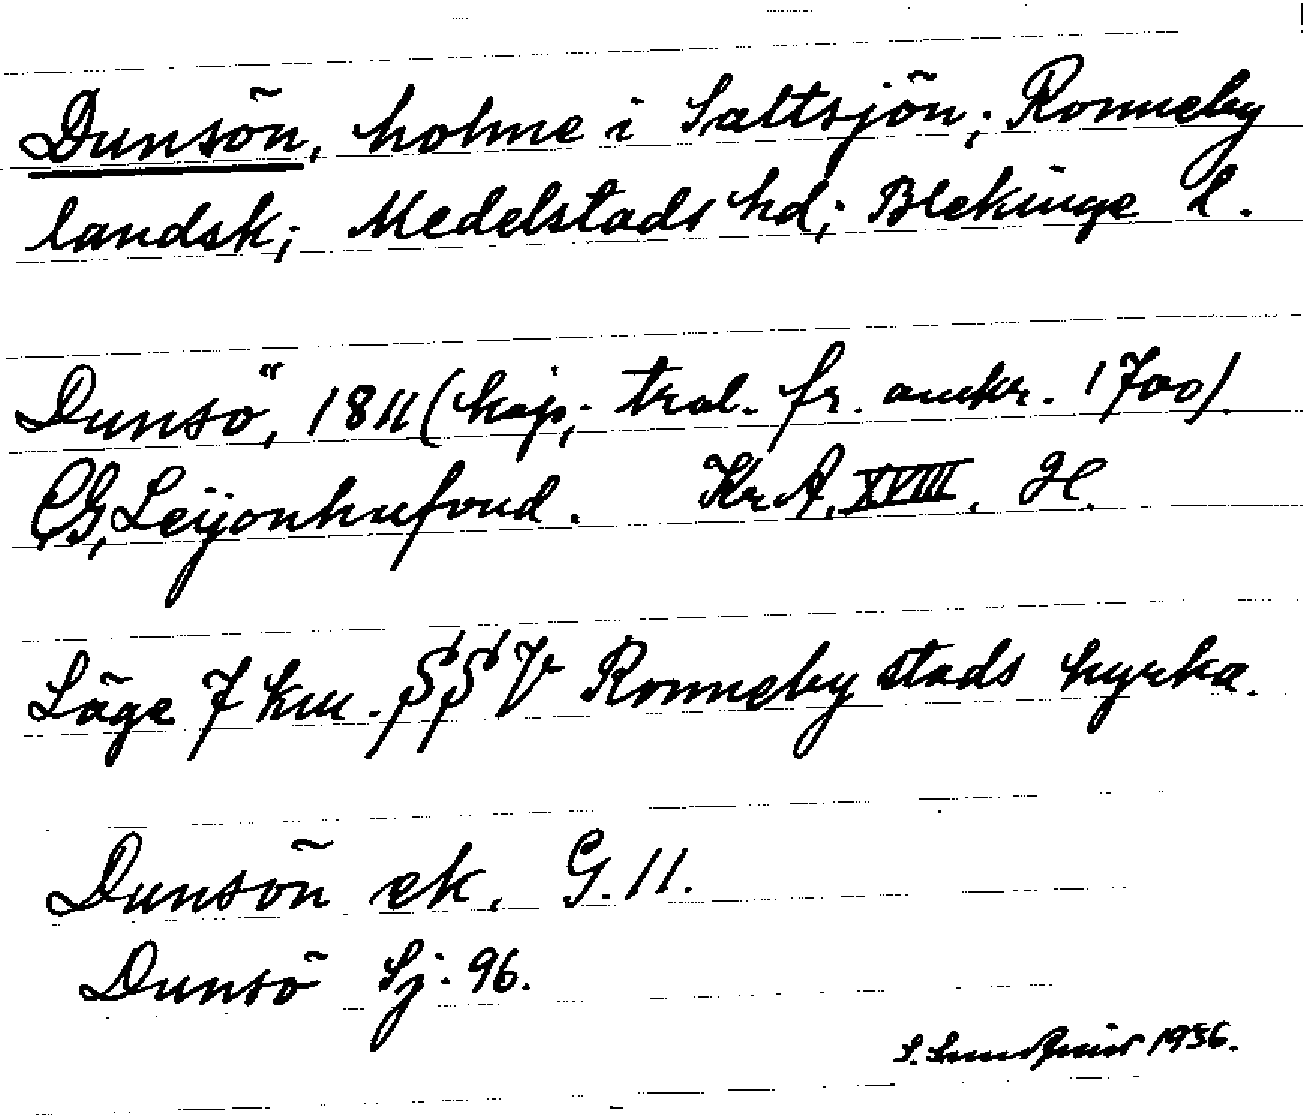 Dunsön, holme i Saltsjön; Ronneby
landsk; Medelstads hd; Blekinge l.
Dunsö, 1811 (kop; tral. fr. omkr. 1700).
CG, Leijonhufvud. Kr. A. XVIII, H.
Läge 7 km. SSV Ronneby stads kyrka.
Dunsön ek. G. 11.
Dunsö Sj. 96.
S. 1956.